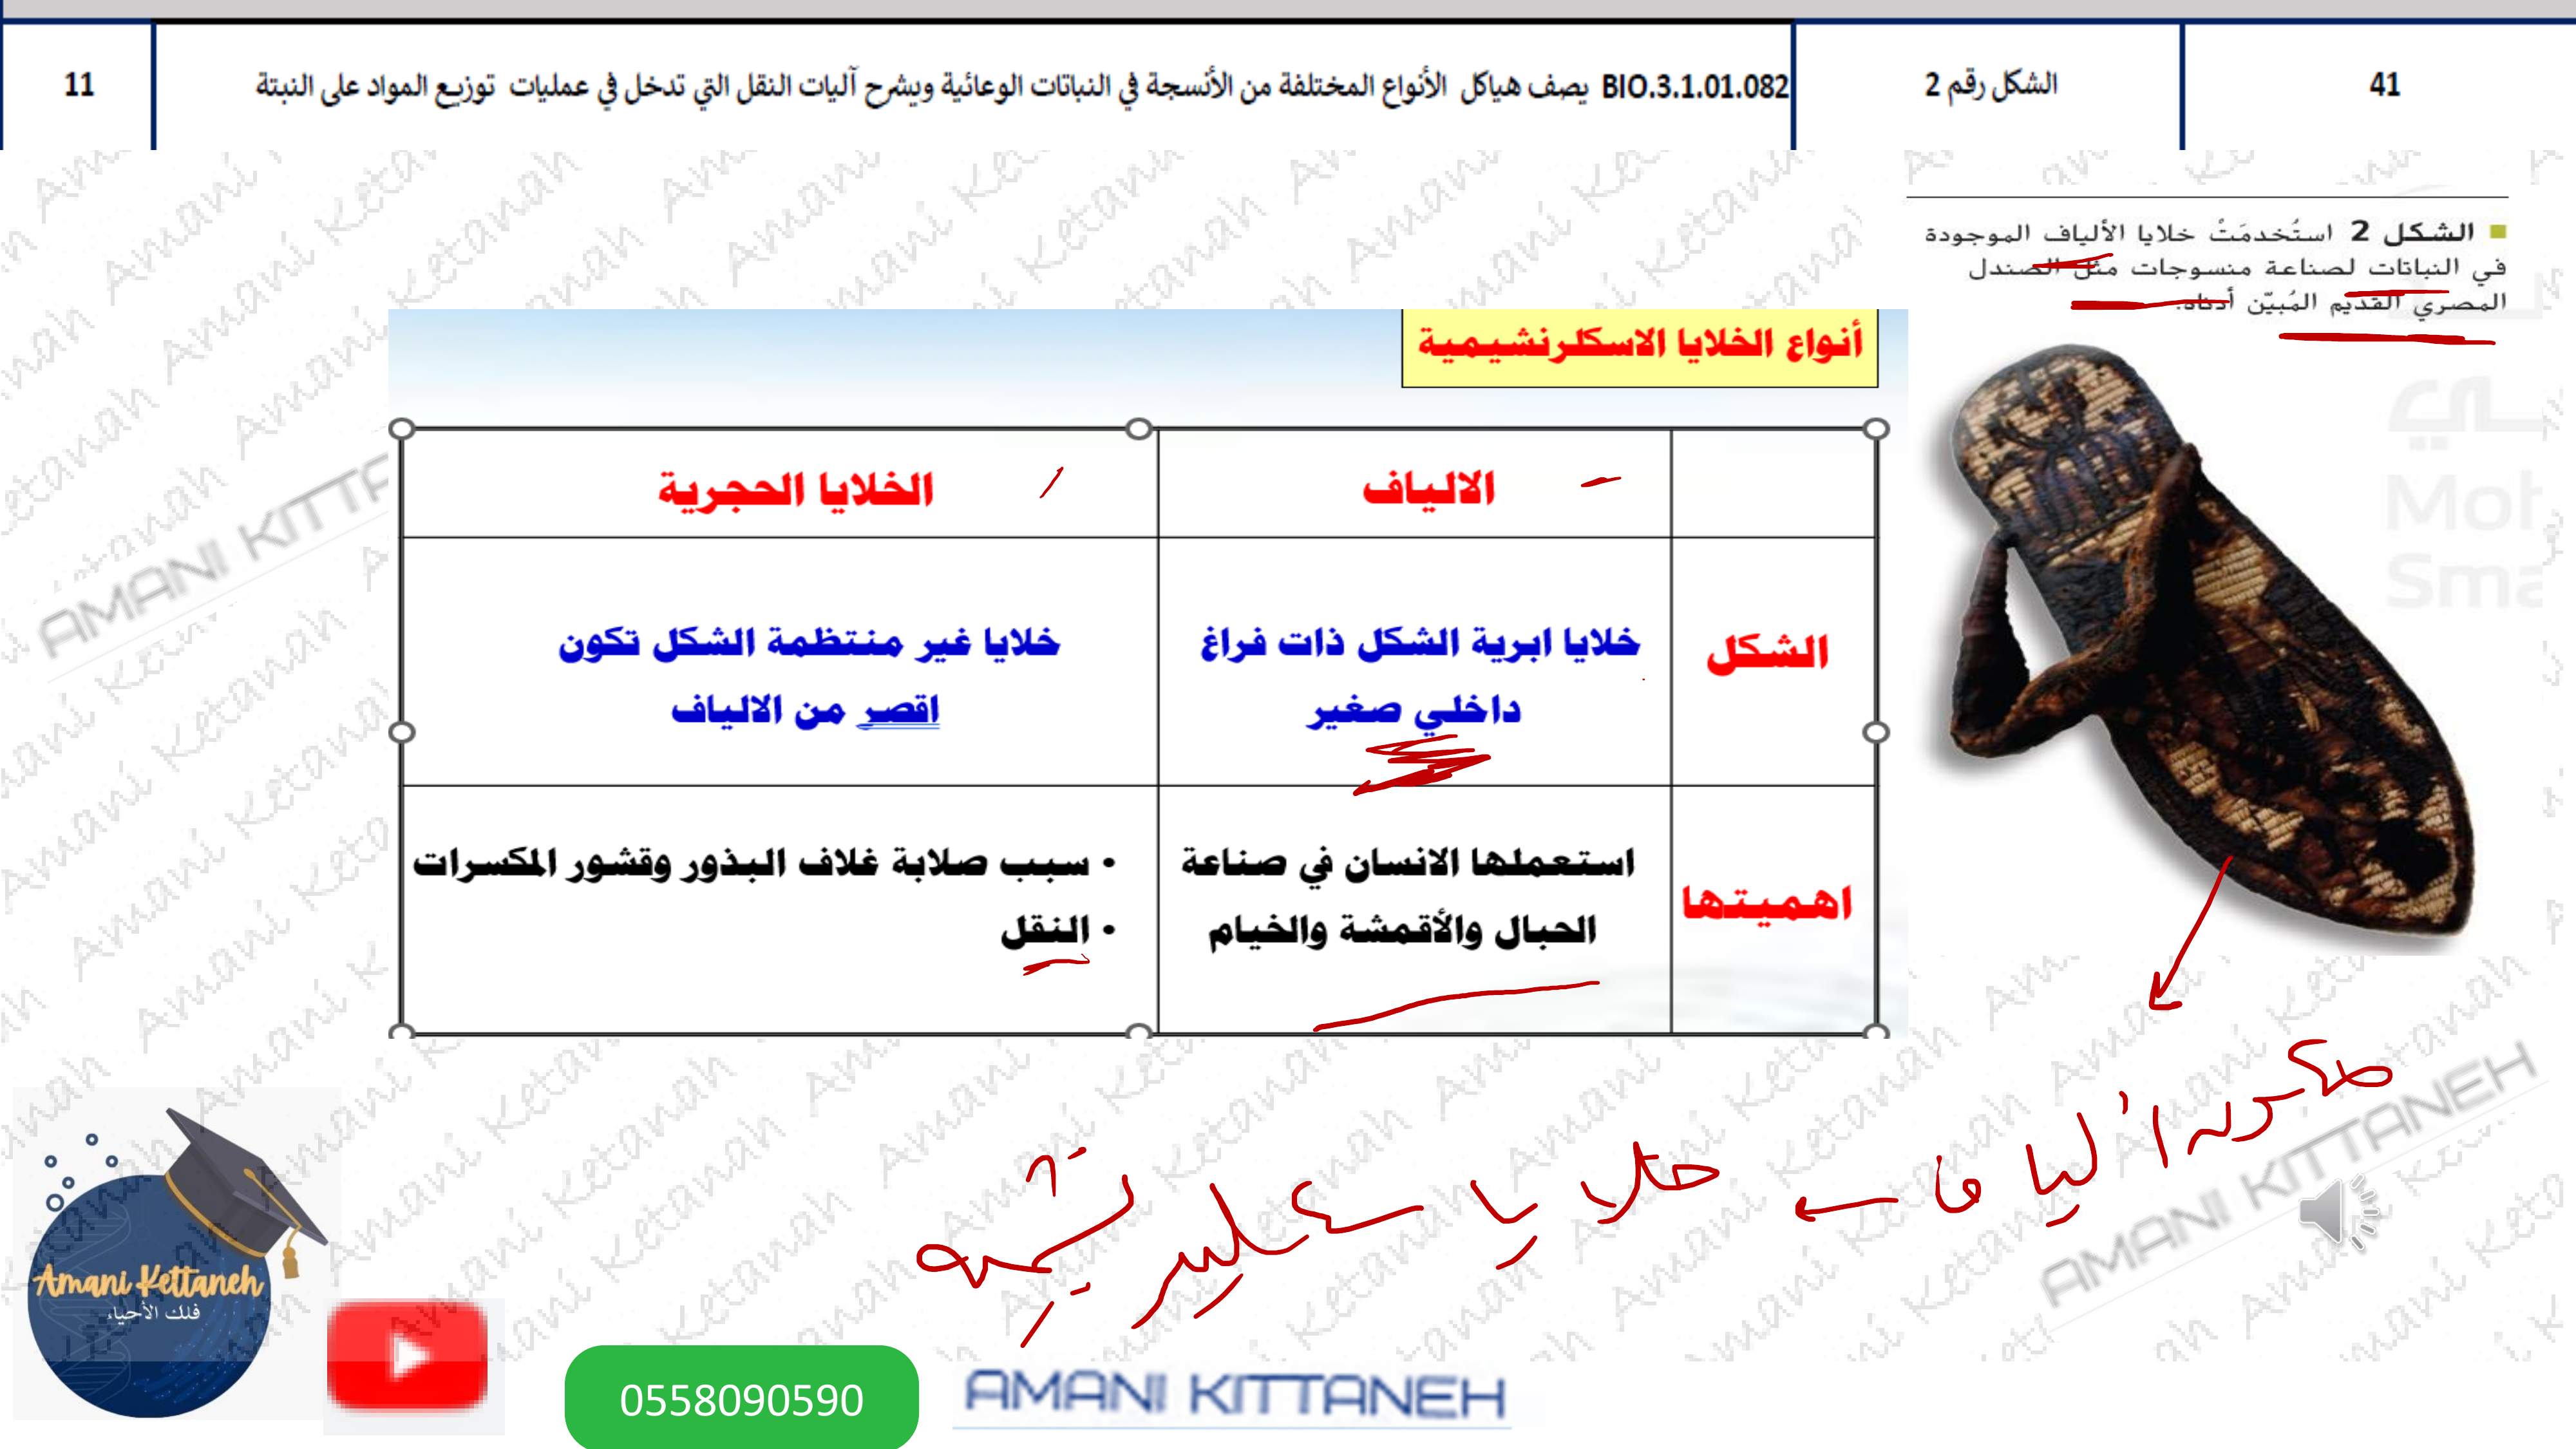 41
الشكل رقم 2
BIO.3.1.01.082 يصف هياكل الأنواع المختلفة من الأنسجة في النباتات الوعائية ويشرح آليات النقل التي تدخل في عمليات توزيع المواد على النبتة
11
الشكل 2 استُخدمَتْ خلايا الألياف الموجودة
في النباتات لصناعة منسوجات مثل الصندل
المصري القديم المُبيّن أدناه.
أنواع الخلايا الاسكلرنشيمية
الالياف
الخلايا الحجرية
الشكل
خلايا ابرية الشكل ذات فراغ
داخلي صغير
خلايا غير منتظمة الشكل تكون
اقصر من الالياف
اهميتها
استعملها الانسان في صناعة
الحبال والأقمشة والخيام
• سبب صلابة غلاف البذور وقشور المكسرات
• النقل
الياف ← خلايا
Amani Kettaneh
فلك الأحياء
0558090590
AMANI KITTANEH
AMANI KITTANEH